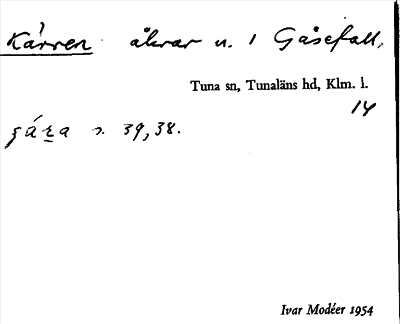 Kärren åkrar u. 1 Gåsefall,
Tuna sn, Tunaläns hd, Klm. l.
14
s. 39, 38.
Ivar Modéer 1954